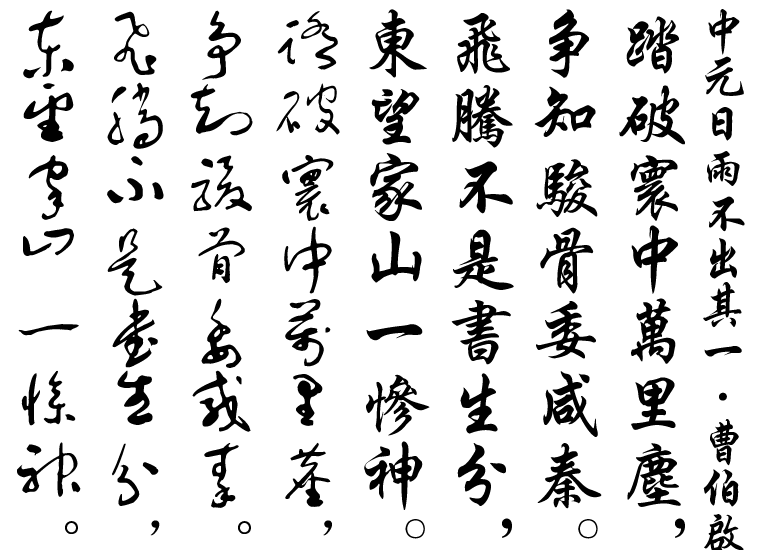 中元日雨不出其一・曹伯啟
踏破寰中萬里塵，
爭知駿骨委咸秦。
飛騰不是書生分，
東望家山一慘神。
踏破寰中萬里塵，
爭知駿骨委咸秦。
飛騰不是書生分，
東望家山一慘神。